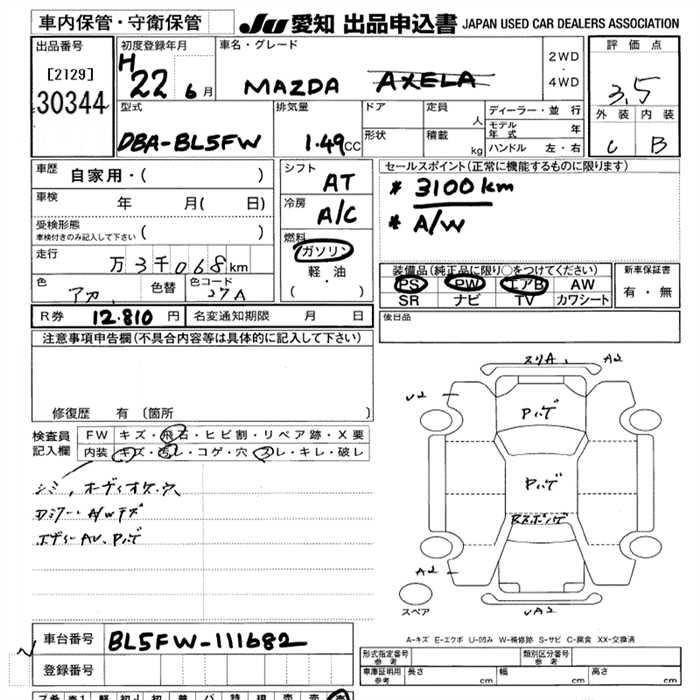 車内保管・守衛保管
JU 愛知 出品申込書 JAPAN USED CAR DEALERS ASSOCIATION
出品番号
[2129]
30344
初度登録年月
H 22 6月
車名・グレード
MAZDA AXELA
2WD
・
4WD
評価点
3.5
外装 内装
C B
型式
DBA-BL5FW
排気量
1.49CC
ドア
形状
定員 人
積載 kg
ディーラー・並行
モデル年式 年
ハンドル 左・右
車歴 自家用・( )
車検 年 月( 日)
受検形態
車検付きのみ記入して下さい ( )
走行
万3千068km
色 アカ
色替
色コード 27A
シフト
AT
冷房
A/C
燃料
ガソリン
軽・油
( ・ )
セールスポイント(正常に機能するものに限ります)
* 3100km
* A/W
装備品(純正品に限り○をつけてください)
PS PW エアB AW
SR ナビ TV カワシート
新車保証書
有・無
R券 12.810円 名変通知期限 月 日
後日品
注意事項申告欄(不具合内容等は具体的に記入して下さい)
修復歴 有 (箇所
検査員
記入欄
FW キズ・飛石・ヒビ割・リペア跡・X要
内装 キズ・汚レ・コゲ・穴・スレ・キレ・破レ
シミ、オーディオケース
A/Wキズ
ボディーAU、Pハゲ
スリA
A2
U2
Pハゲ
Pハゲ
A2
UA2
スペア
A-キズ E-エクボ U-凹み W-補修跡 S-サビ C-腐食 XX-交換済
車台番号 BL5FW-111682
登録番号
形式指定番号
参考
類別区分番号
参考
車庫証明用
参考
長さ cm 幅 cm 高さ cm